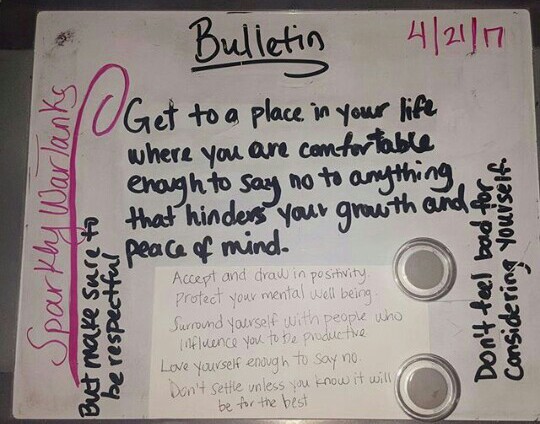 Bulletin
4/21/17
Sparkly WarTanks
Get to a place in your life
where you are comfortable
enough to say no to anything
that hinders your growth and
peace of mind.
But make sure to
be respectful
Don't feel bad for
Considering yourself.
Accept and draw in positivity.
Protect your mental well being.
Surround yourself with people who
influence you to be productive
Love yourself enough to say no.
Don't settle unless you know it will
be for the best